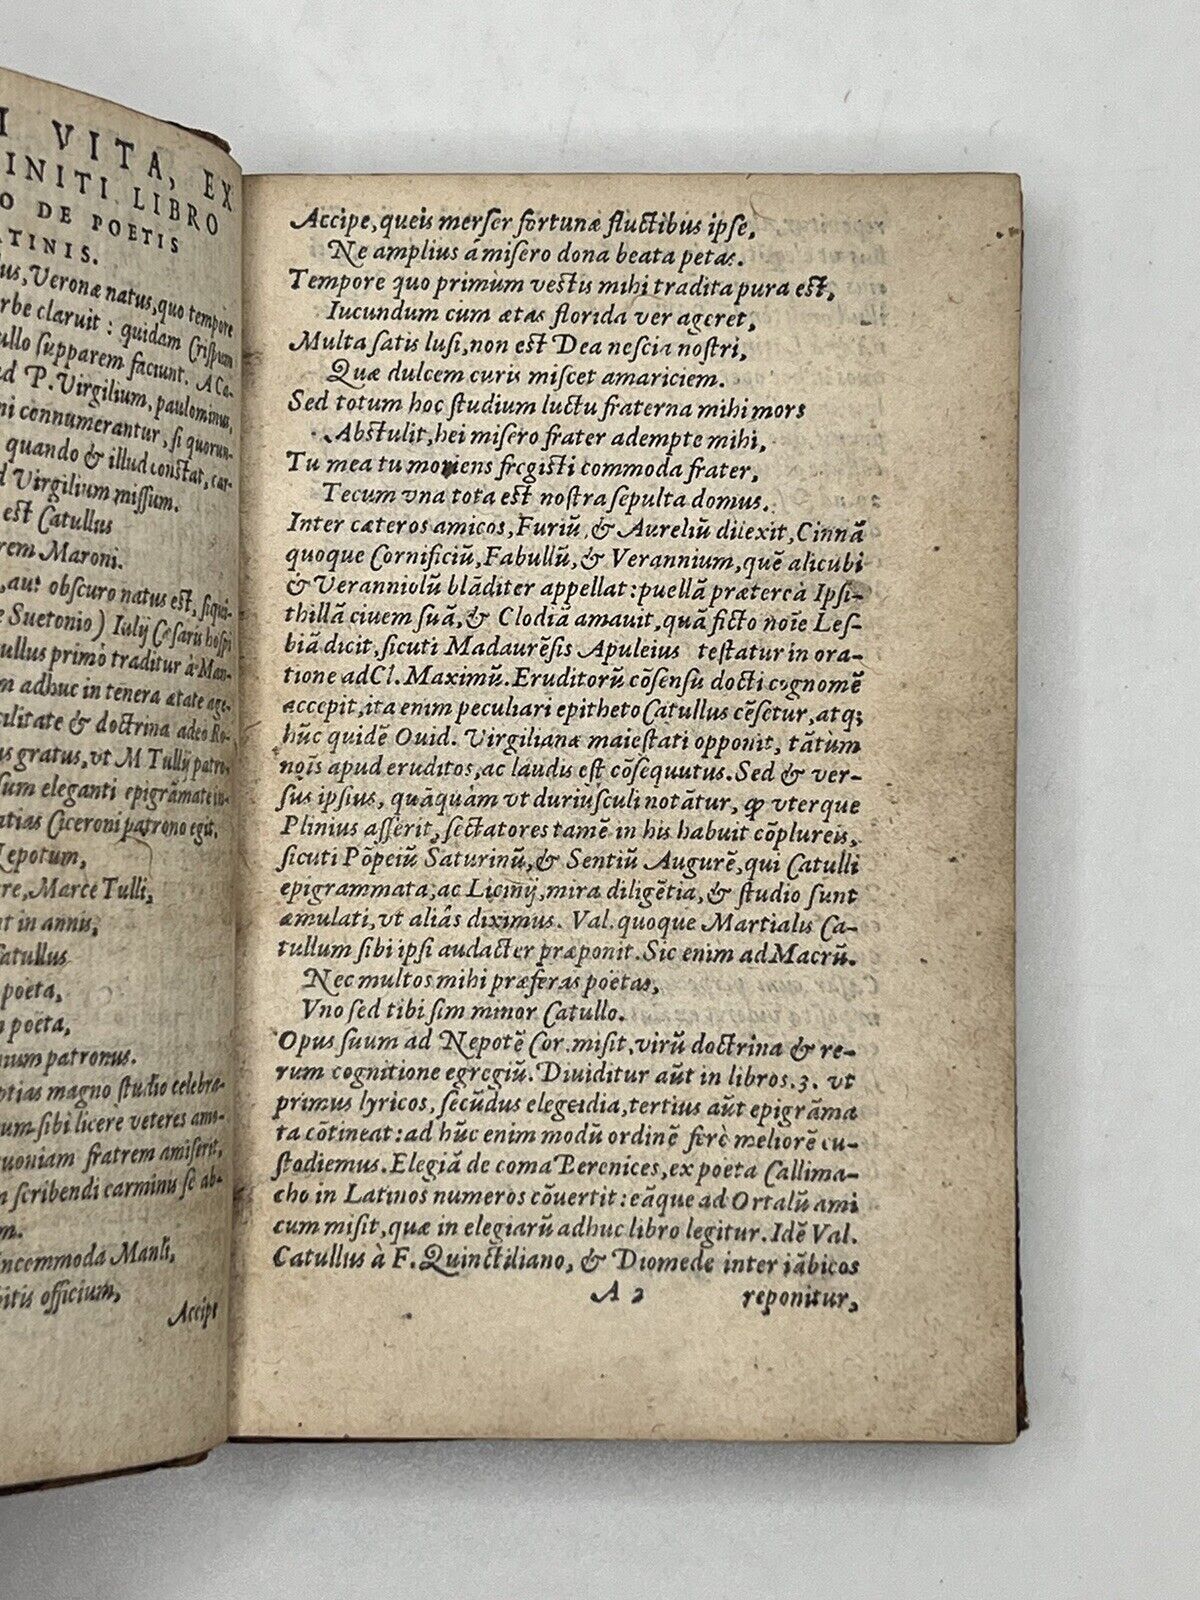 I VITA, EX
INITI LIBRO
O DE POETIS
ATINIS.
lus, Veronæ natus, quo tempore
rbe claruit: quidam Crispum
ullo supparem faciunt. A Ca-
ad P. Virgilium, paulominus,
ni connumerantur, si quorun-
quando & illud constat, car-
d Virgilium missum.
est Catullus
rem Maroni.
, aut obscuro natus est, siqui-
e Suetonio) Iulij Cęsarū hospi
ullus primò traditur à Man-
m adhuc in tenera ætate age-
cilitate & doctrina adeo Ro-
us gratus, vt M Tullij patro-
sum eleganti epigrāmate in-
atias Ciceroni patrono egit,
Nepotum,
re, Marce Tulli,
nt in annis,
Catullus
poeta,
n poeta,
nium patronus.
ptias magno studio celebra-
um sibi licere veteres ami-
uoniam fratrem amiserit,
n scribendi carminis se ab-
m.
incommoda Manli,
pitis officium,
Accipe
Accipe, queis merser fortunæ fluctibus ipse,
Ne amplius á misero dona beata petas.
Tempore quo primùm vestis mihi tradita pura est,
Iucundum cum ætas florida ver ageret,
Multa satis lusi, non est Dea nescia nostri,
Quæ dulcem curis miscet amariciem.
Sed totum hoc studium luctu fraterna mihi mors
Abstulit, hei misero frater adempte mihi,
Tu mea tu moriens fregisti commoda frater,
Tecum vna tota est nostra sepulta domus.
Inter cæteros amicos, Furiū, & Aureliū dilexit, Cinnā
quoque Cornificiū, Fabullū, & Verannium, quē alicubi
& Veranniolū blāditer appellat: puellā prætereà Ipsi-
thillā ciuem suā, & Clodiā amauit, quā ficto noīe Les-
biā dicit, sicuti Madaurēsis Apuleius testatur in ora-
tione ad Cl. Maximū. Eruditorū cōsensu docti cognomē
accepit, ita enim peculiari epitheto Catullus cēsetur, atq;
hūc quidē Ouid. Virgilianæ maiestati opponit, tātùm
noīs apud eruditos, ac laudis est cōsequutus. Sed & ver-
sus ipsius, quāquàm vt duriusculi notātur, ꝙ vterque
Plinius asserit, sectatores tamē in his habuit cōplureis,
sicuti Pōpeiū Saturinū, & Sentiū Augurē, qui Catulli
epigrammata, ac Licinij, mira diligētia, & studio sunt
æmulati, vt aliâs diximus. Val. quoque Martialis Ca-
tullum sibi ipsi audacter præponit. Sic enim ad Macrū.
Nec multos mihi præferas poëtas,
Vno sed tibi sim minor Catullo.
Opus suum ad Nepotē Cor. misit, virū doctrina & re-
rum cognitione egregiū. Diuiditur aūt in libros. 3. vt
primus lyricos, secūdus elegeidia, tertius aūt epigrāma
ta cōtineat: ad hūc enim modū ordinē ferè meliorē cu-
stodiemus. Elegiā de coma Berenices, ex poeta Callima-
cho in Latinos numeros cōuertit: eāque ad Ortalū ami
cum misit, quæ in elegiarū adhuc libro legitur. Idē Val.
Catullus à F. Quinctiliano, & Diomede inter iābicos
A 2 reponitur,